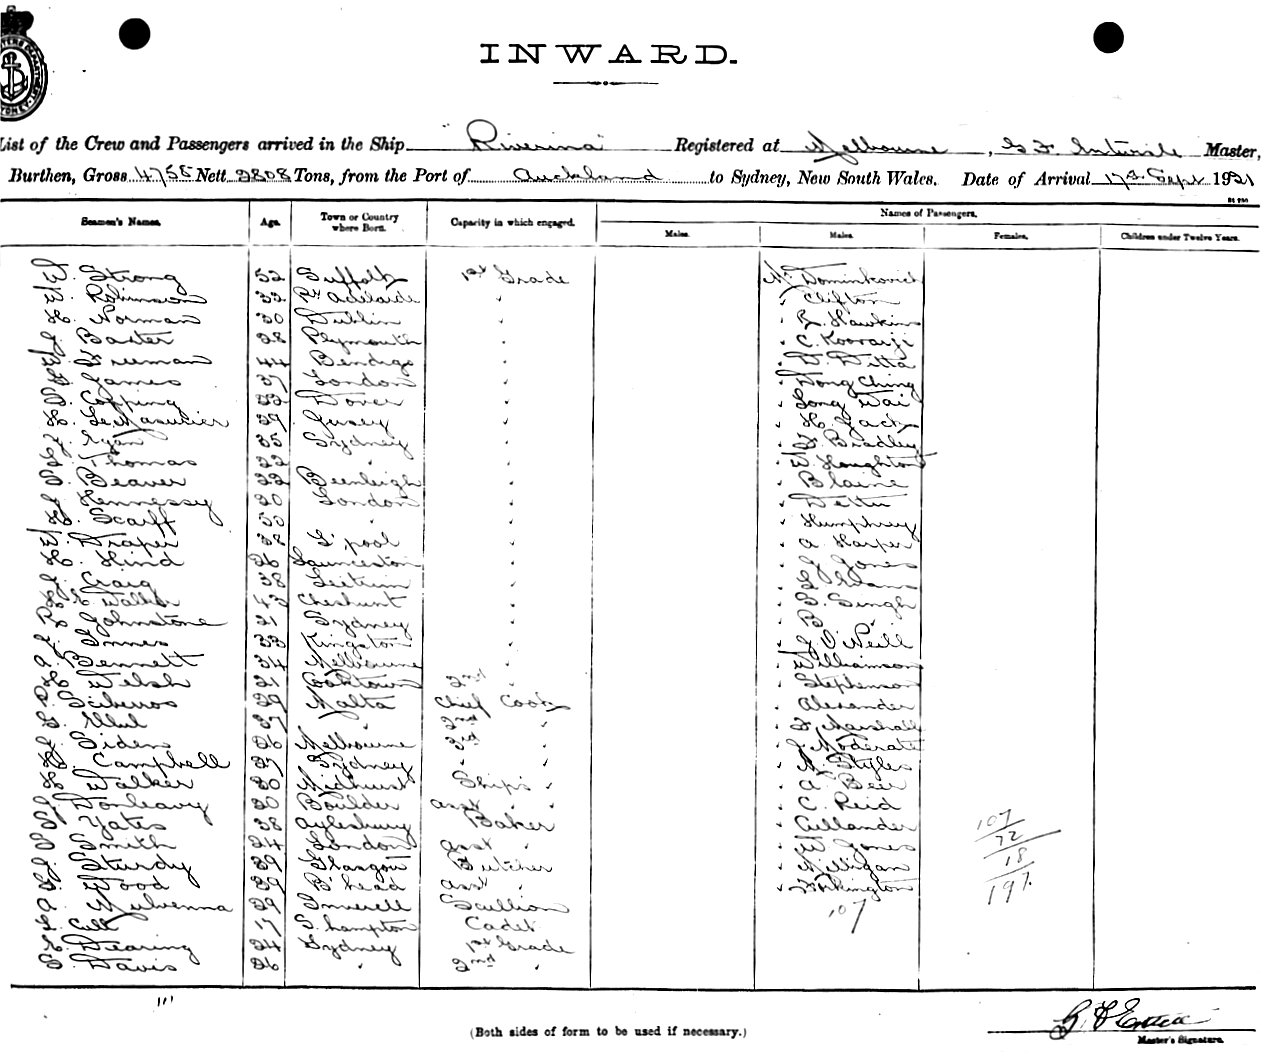 INWARD.
List of the Crew and Passengers arrived in the Ship "Riverina" Registered at Melbourne, G F Entwisle Master,
Burthen, Gross 4758 Nett 2808 Tons, from the Port of Auckland to Sydney, New South Wales. Date of Arrival 17th Sept 1921
Seamen's Names. Age. Town or Country where Born. Capacity in which engaged. Names of Passengers.
Males. Males. Females. Children under Twelve Years.
W. Strong 52 Suffolk 1st Grade Mr Dominkovich
W. Robinson 32 Pt Adelaide " " Clifton
H. Norman 30 Dublin " " R. Hawkins
J. Baxter 28 Plymouth " " C. Koorarji
W. Freeman 44 Bendigo " " D. Ditta
G. James 37 London " " Dong Ching
Copping Dover " " Long Wai
H. Le Masurier 29 Jersey " " H. Jack
J. Ryan 35 Sydney " " Bradley
Thomas 22 " " " W. Houghton
Beaver 22 Beenleigh " " Blaine
J. Hennessy 20 London " "
H. Scaiff " " " Humphrey
W. Draper 38 L'pool " " A Harper
H. Hind 26 Launceston " " J. Jones
J. Craig 38 Leitrim " "
Walker 43 Cheshunt " " B. Singh
Johnstone 21 Sydney " " B "
J. Innes 33 Kingston " " J O'Neill
A. Bennett 34 Melbourne " " Williamson
H. Welsh 21 Cooktown 2nd " " Stephenson
29 Malta Chief Cook " Alexander
37 " 2nd " " F. Marshall
J. Sidens 26 Melbourne 3rd " " J. Moderate
Campbell 27 Sydney " " " Styles
H. Walker 30 Midhurst Ship's " " A. Beer
J. Donleavy 20 Boulder asst " " " C. Reid
Yates 38 Aylesbury Baker " Cullander
Smith 24 London asst " " W. Jones
Sturdy 39 Glasgow Butcher " Milligan
Wood 39 B'head asst " " Workington
A. Mulvenna 29 Inverell Scullion
17 S.hampton Cadet
E. Dearing 24 Sydney 1st Grade
Davis 26 " 2nd "
107
107
72
18
197.
111
(Both sides of form to be used if necessary.)
Master's Signature.